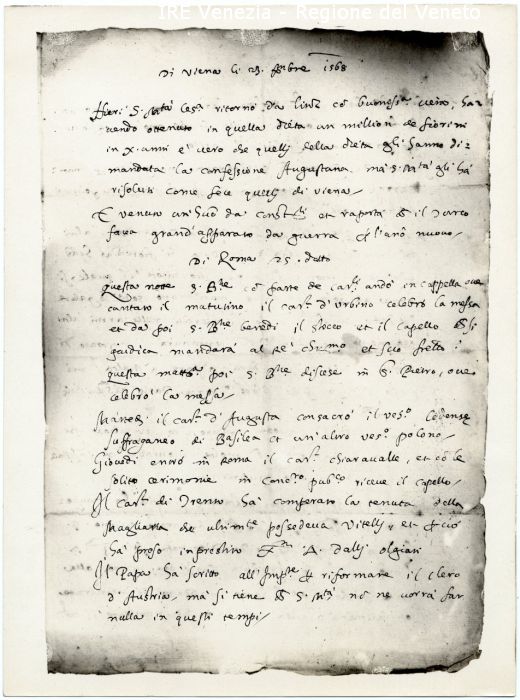 IRE Venezia - Regione del Veneto
Di Viena li 23. Xbre 1568
Hieri S. Mtà Cesa ritornò da linz cõ buonissa ciera, ha-
vendo ottenuto in quella dieta un million de fiorini
in X. anni è vero che quelli della dieta gli hanno di-
mandata la confessione Augustana. mà S. Mtà gli hà
risoluti come fece quelli di viena/
È venuto un da Constli et raporta il Turco
facia grand'apparato da guerra p l'anõ nuovo/
Di Roma 25. detto
Questa notte S. Bne cõ parte de carli andò in cappella ove
cantato il matutino il carl d'Urbino celebrò la messa
et da poi S. Bne benedì il stocco et il capello si
giudica mandarà al rè chrmo. et suo frello
questa matta poi S. Bne discese in S. Pietro, ove
celebrò la messa/
Martedì il carl d'Augusta consacrò il vesco
suffraganeo di Basilea et un'altro vesco polono/
Giovedì entrò in Roma il carl chiaravalle, et cõ le
solite cerimonie in concro pubco riceve il capello/
Il carl di Trento hà comperato la tenuta della
Magliana che ultimte possedeva Vitelli et p ciò
hà preso in prestito dalli olgiati
Il Papa hà scritto all'Impre p riformare il clero
d'Austria, mà si tiene S. Mtà nõ ne vorrà far
nulla in questi tempi/